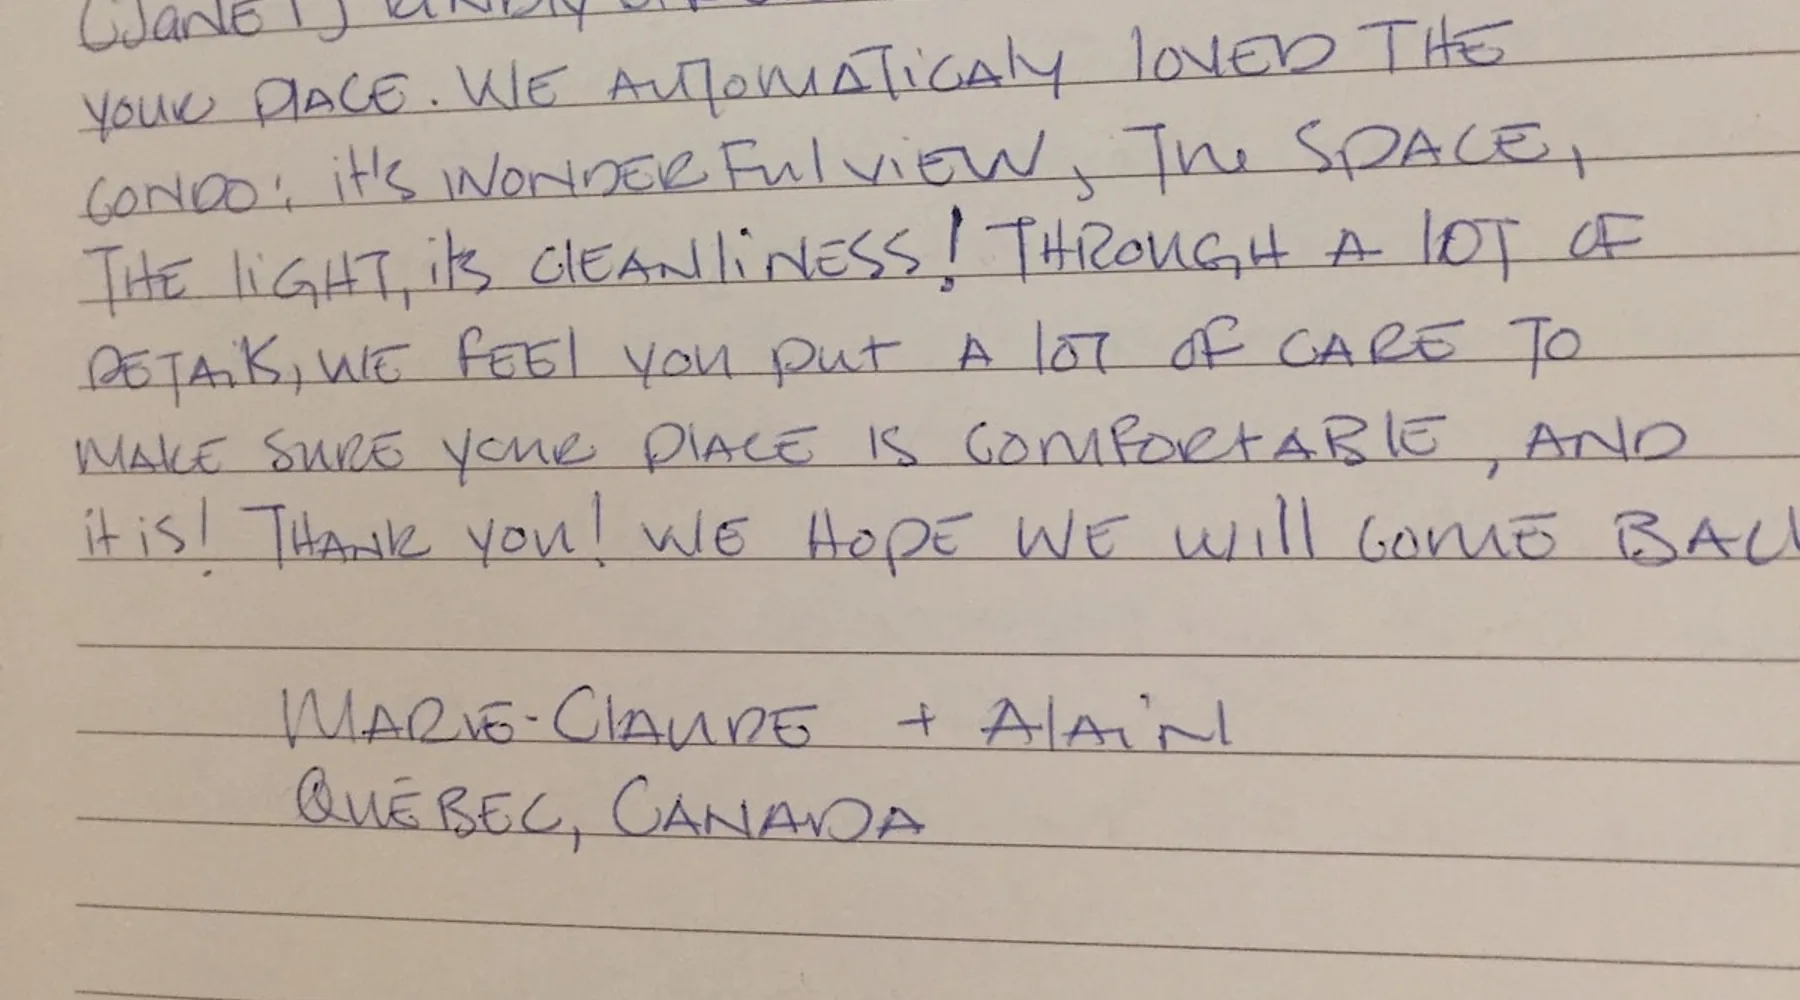 (JANET) KINDLY
YOUR PLACE. WE AUTOMATICALY LOVED THE
CONDO: it's WONDERFUL VIEW, THE SPACE,
THE LIGHT, it's CLEANLINESS! THROUGH A LOT OF
DETAILS, WE FEEL YOU PUT A LOT OF CARE TO
MAKE SURE YOUR PLACE IS COMFORTABLE, AND
it is! THANK YOU! WE HOPE WE WILL COME BAC
MARIE-CLAUDE + ALAIN
QUÉBEC, CANADA